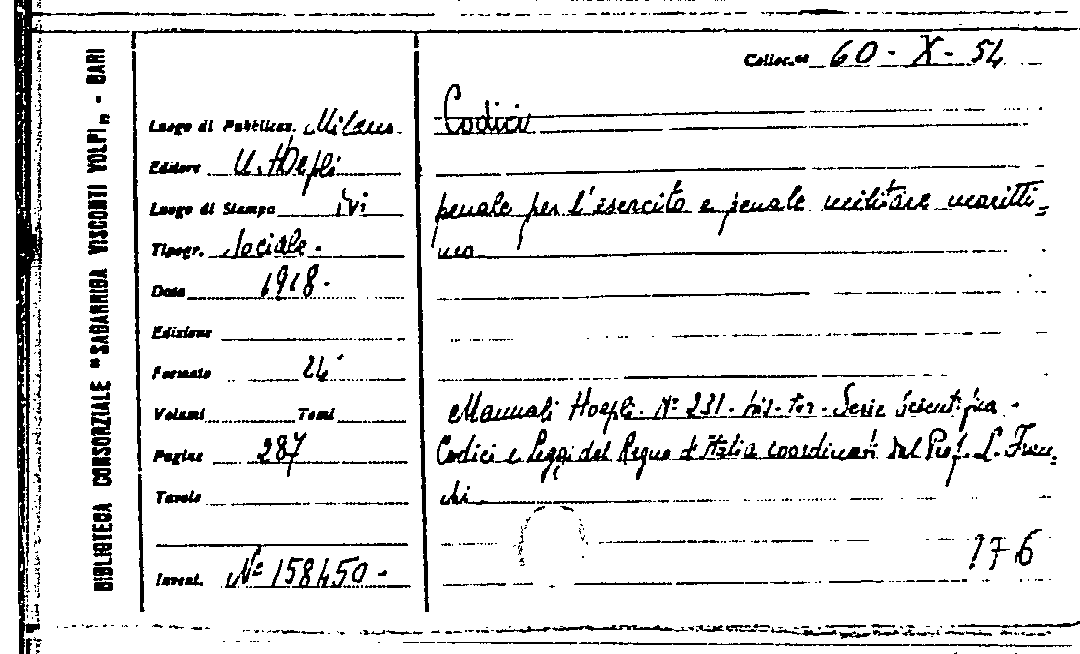 BIBLIOTECA CONSORZIALE "SAGARRIGA VISCONTI VOLPI„ - BARI
Colloc.ne 60 - X - 54
Luogo di Pubblicaz. Milano
Editore U. Hoepli
Luogo di Stampa ivi
Tipogr. Sociale.
Data 1918.
Edizione
Formato 24°
Volumi Tomi
Pagine 287
Tavole
Invent. N° 158450.
Codici
penale per l'esercito e penale militare maritti=
mo
Manuali Hoepli. N° 231. bis-ter. Serie scientifica.
Codici e Leggi del Regno d'Italia coordinati dal Prof. L. Fran=
chi
176